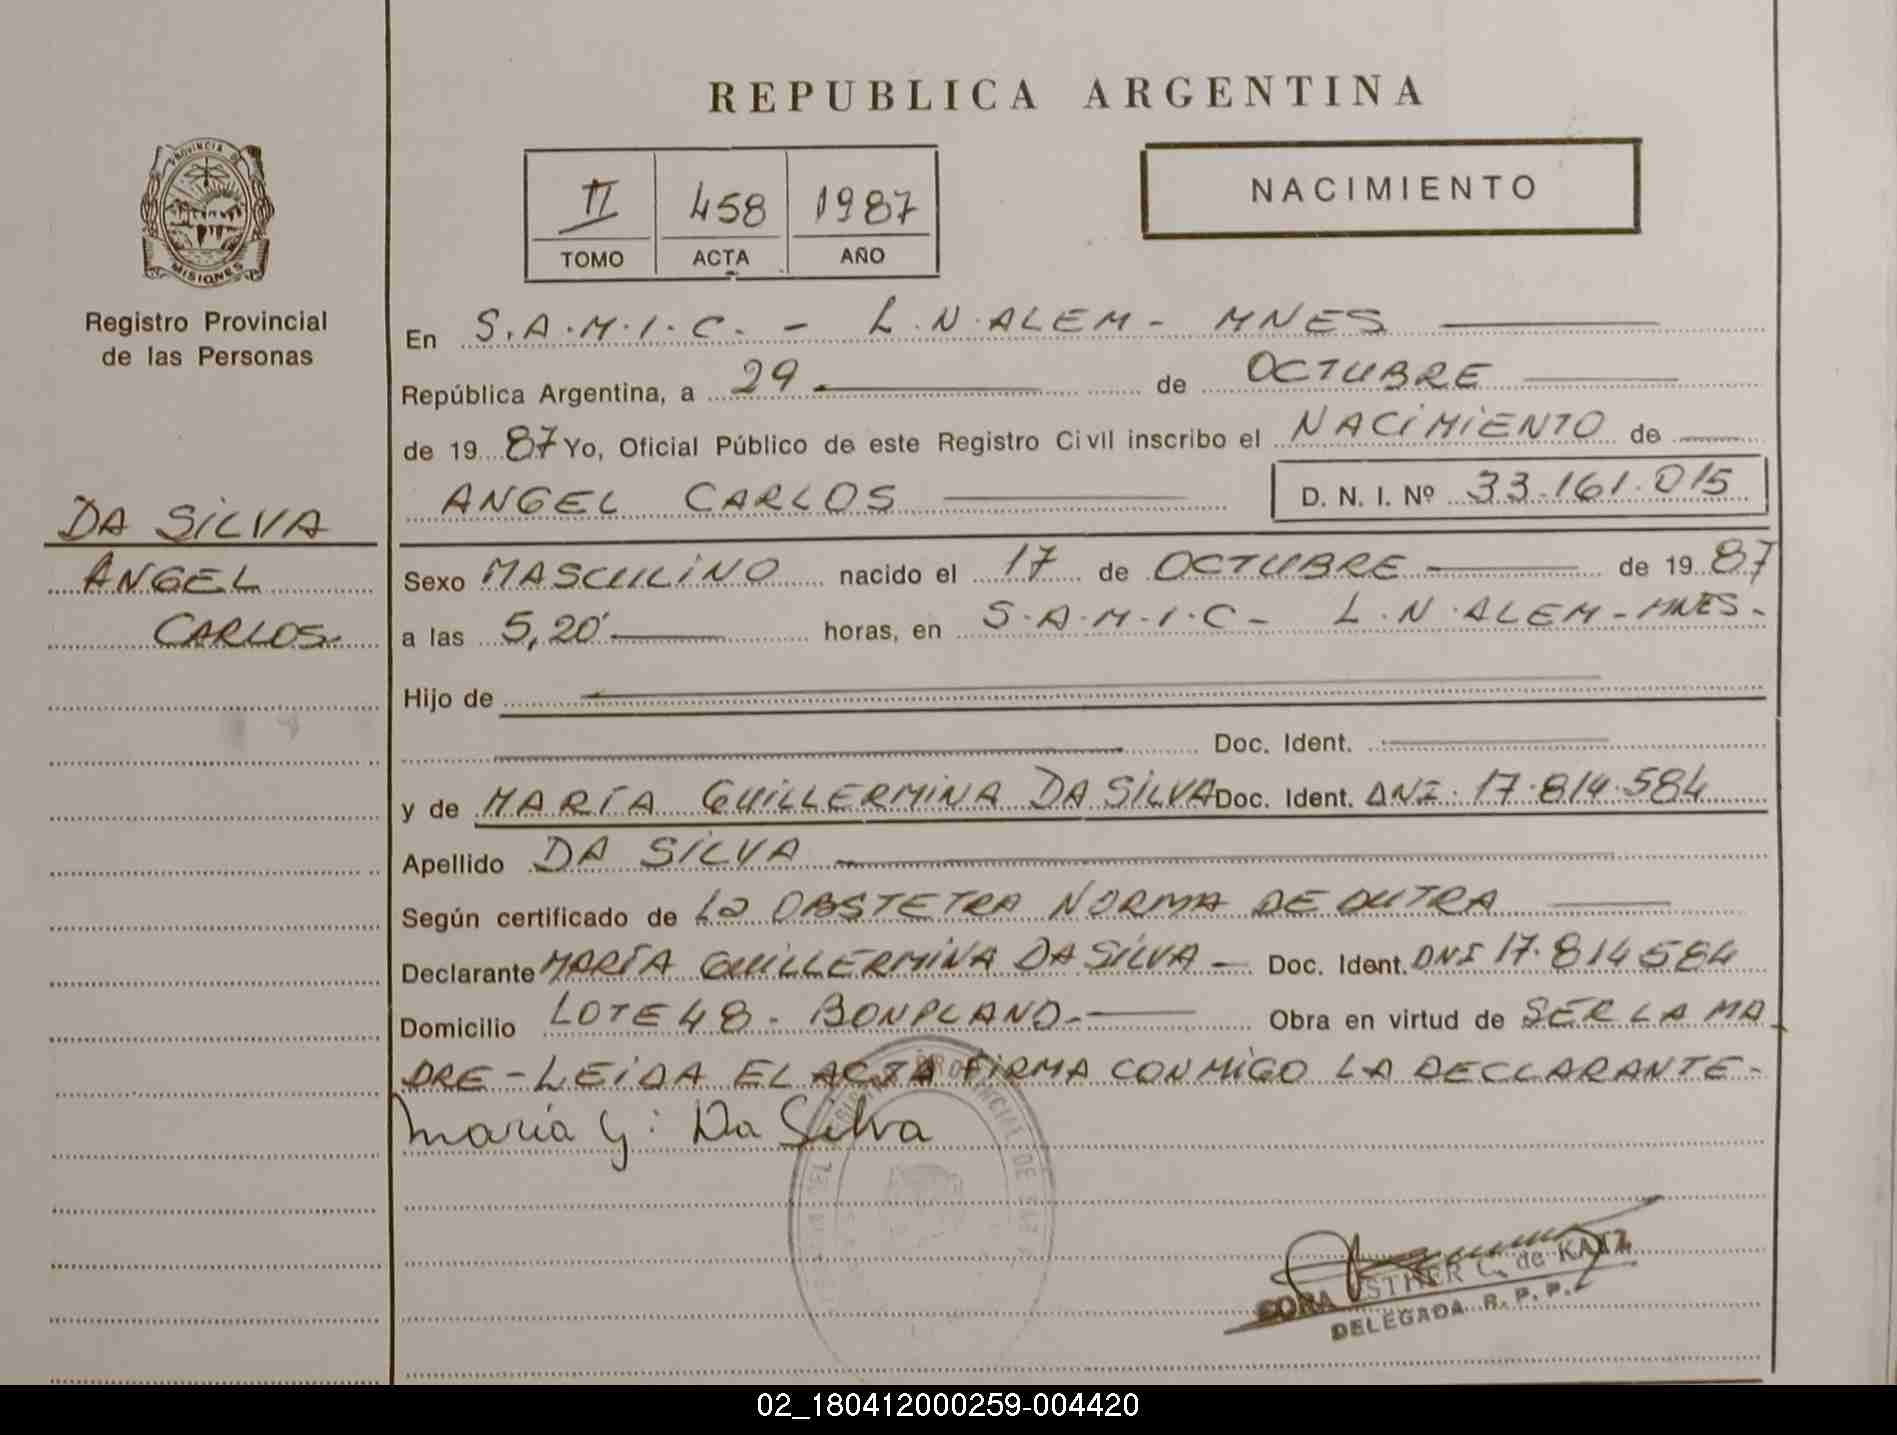 REPUBLICA ARGENTINA
PROVINCIA DE
MISIONES
Registro Provincial
de las Personas
II 458 1987
TOMO ACTA AÑO
NACIMIENTO
DA SILVA
ANGEL
CARLOS.-
En S.A.M.I.C. - L.N.ALEM- MNES
República Argentina, a 29 de OCTUBRE
de 19 87 Yo, Oficial Público de este Registro Civil inscribo el NACIMIENTO de
ANGEL CARLOS D. N. I. Nº 33.161.015
Sexo MASCULINO nacido el 17 de OCTUBRE de 19 87
a las 5,20' horas, en S.A.M.I.C- L.N.ALEM-MNES-
Hijo de
Doc. Ident.
y de MARÍA GUILLERMINA DA SILVA Doc. Ident. DNI. 17.814.584
Apellido DA SILVA
Según certificado de La OBSTETRA NORMA DE DUTRA
Declarante MARÍA GUILLERMINA DA SILVA - Doc. Ident. DNI 17.814584
Domicilio LOTE 48 - BONPLAND- Obra en virtud de SER LA MA
DRE-LEIDA EL ACTA FIRMA CONMIGO LA DECLARANTE-
maría G: Da Silva
DORA ESTHER C. de KATZ
DELEGADA R. P. P.
02_180412000259-004420